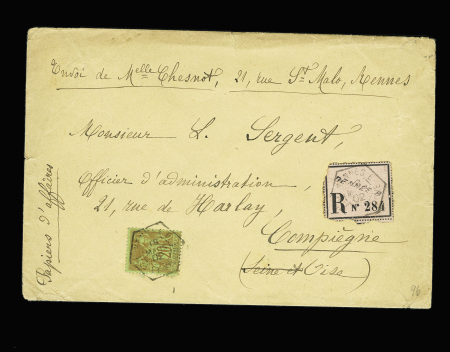 Envoi de Melle Chesnot, 21, rue St Malo, Rennes
Monsieur L. Sergent,
Officier d'administration,
21, rue de Harlay,
Compiègne
(Seine et Oise)
Papiers d'affaires
R N° 284
96